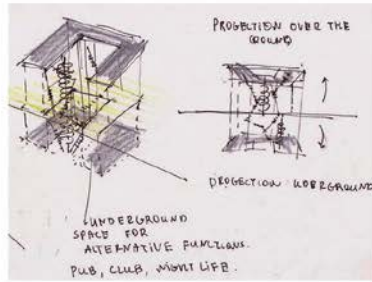 PROGECTION OVER THE
GOUND
PROGECTION UDERGROUND
UNDERGROUND
SPACE FOR
ALTERNATIVE FUNCTIONS.
PUB, CLUB, NIGHT LIFE.